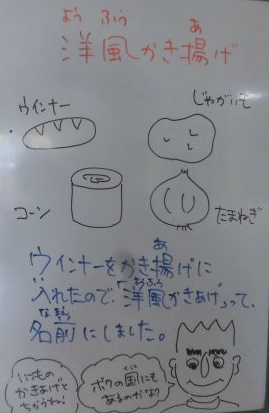 よう ふう あ
洋風かき揚げ
ウインナー
じゃがいも
コーン
たまねぎ
あ
ウインナーをかき揚げに
ようふう
入れたので、「洋風かきあげ」って、
なまえ
名前にしました。
いつもの
かきあげと
ちがうわね!
くに
ボクの国にも
あるのかな?